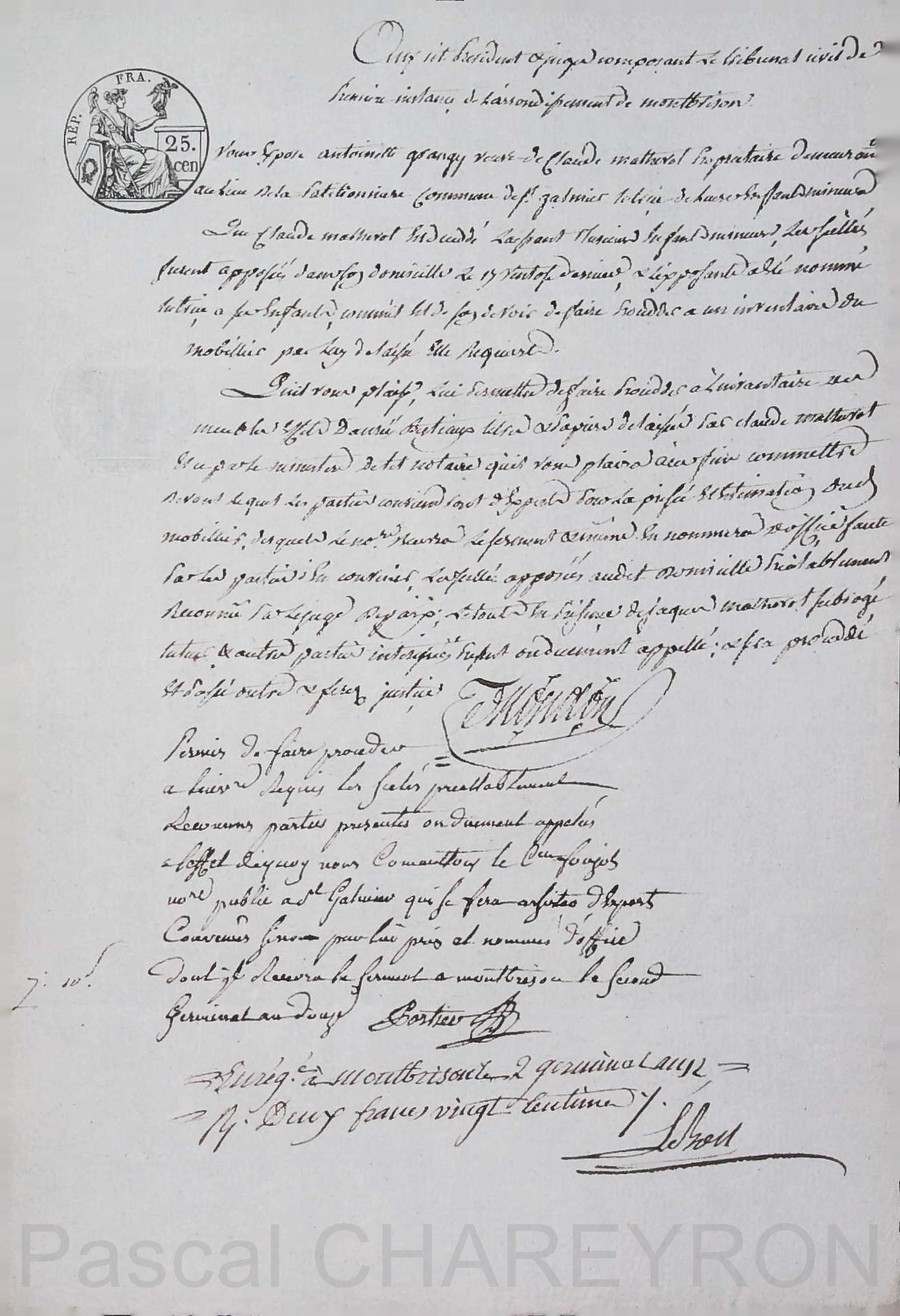 Aux cit. President & juges composant Le tribunal civil de
Premiere instance de L'arrondissement de montbrison
REP. FRA.
25.
cen
Vous Expose antoinette grangy veuve de Claude mathevot Proprietaire demeurant
au lieu de la Commune de St. galmier tutrice de Leurs Enfants mineurs
Que Claude mathevot Est decedé Laissant Plusieurs Enfants mineurs, Les scellés
furent apposés dans son domicille Le 17 Ventose dernier, & L'exposante a été nommée
tutrice a ses Enfants, comme il Est de son devoir de faire proceder a un inventaire du
mobillier par Luy delaissé Elle Requiert
Qu'il vous plaise, Lui Permettre de faire Proceder à L'inventaire des
meubles Effets Danrés Bestiaux titres & Papiers delaissés Par claude mathevot
Et ce par le ministere de tel notaire qu'il vous plaira à ces fins commettre
devant lequel Les parties conviendront d'Experts Pour La prisée & Estimation dud.
mobillier, desquels Le nore. Recevra Le serment & même En nommera d'office faute
Par les parties d'En convenir, Les scellés apposés audit domicille Préalablement
Reconnus Par Le juge de paix; Le tout En Présence de jaques mathevot subrogé
tuteur & autres parties interessées Presents ou duement appellés; & sera procedé
Et Passé outre & ferez justice
Permis de faire proceder
a linvre. Requis les scelés prealablement
Reconnus parties presentes ou duement appelés
a leffet dequoy nous Commettons le Cen foujols
nore public a St Galmier qui se fera assister d'Experts
Convenus sinon par lui pris et nommés d'office
dont il Recevra le serment a montbrison le second
Germinal an douze Portier
Enregé. à montbrison le 2 germinal an 12
R. Deux francs vingt Centimes
Pascal CHAREYRON